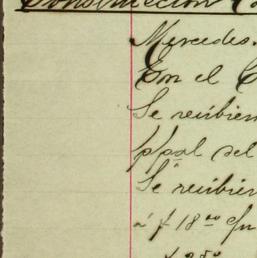 Construcción
Mercedes.
Con el C
Se recibier
ppal del
Se recibier
á $ 18.00 c/u